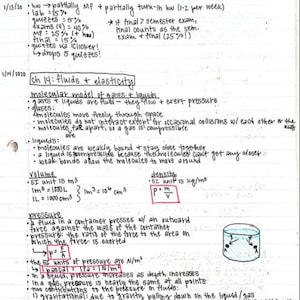 1/13/2020
• hw → partially MP + partially turn-in hw (1-2 per week)
• lab = 15%
• quizzes = 15%
• exams (3) = 45%
• MP = 25% (+ hw)
• final = 15%
• quizzes via iclicker!
↳ drops 5 quizzes!
* if final > semester exam,
final counts as the sem.
exam + final (25%!!)
1/14/2020
ch 14: fluids + elasticity
molecular model of gases + liquids
• gases + liquids are fluid – they flow + exert pressure
• gases:
↳ molecules move freely through space
• molecules do not interact except for occasional collisions w/ each other or the walls
• molecules far apart, so a gas is compressible
• liquids:
• molecules are weakly bound + stay close together
• a liquid is incompressible because the molecules can't get any closer
• weak bonds allow the molecules to move around
volume
• SI unit is m³
1m³ = 1000L
1L = 1000cm³
1m³ = 10⁶ cm³
density
• SI unit is kg/m³
ρ = m/V
pressure
• a fluid in a container presses w/ an outward
force against the walls of the container
• pressure: the ratio of the force to the area on
which the force is exerted
↳ p = F/A
• the SI units of pressure are N/m²
↳ 1 pascal = 1 Pa = 1 N/m²
• in a liquid, pressure increases as depth increases
• in a gas, pressure is nearly the same at all points
• two contributions to the pressure in fluids:
1) gravitational: due to gravity pulling down on the liquid/gas